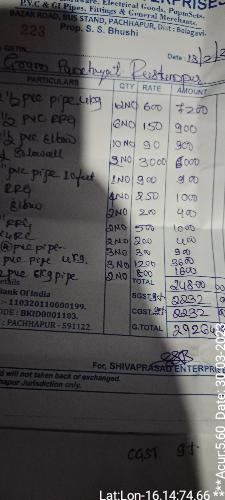 ERPRISES
ardware, Electrical Goods, PumpSets,
P.V.C & GI Pipes, Fittings & General Merchants.
BAZAR ROAD, BUS STAND, PACHHAPUR, Dist : Belagavi.
223 Prop. S. S. Bhushi
GSTIN Date : 13/2/2
Gram Panchayat
PARTICULARS QTY RATE AMOUNT
1½ pvc pipe 4kg 12NO 600 7200
1½ PVC 6NO 150 900
PVC Elbow 10NO 90 900
2NO 3000 6000
pvc pipe 1NO 900 900
4NO 250 1000
Elbow 2NO 200 400
2NO 500 1000
2NO 200 400
pvc pipe 3NO 300 900
pvc pipe 4kg. 3NO 1200 3600
pvc 6kg pipe 2NO 800 1600
etails TOTAL 24800 00
Bank Of India SGST 9% 2232
: 110320110000199. CGST 9% 2232
CODE : BKID0001103. G.TOTAL 29264
: PACHHAPUR - 591122.
For, SHIVAPRASAD ENTERPR
d will not taken back or exchanged.
hapur Jurisdiction only.
CGST 9%
Lat:Lon-16.14:74.66
***Acur:5.60 Date: 30-03-2023